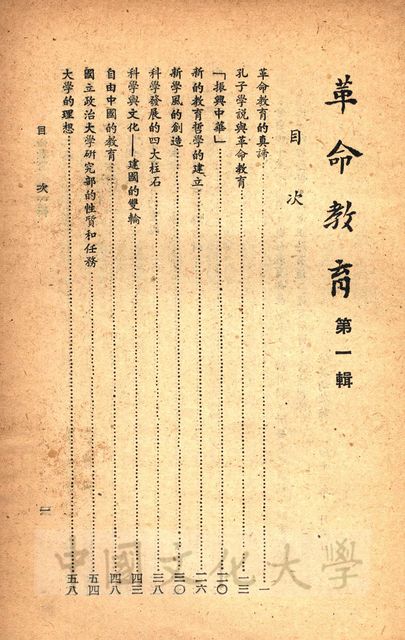 革命教育 第一輯
目次
革命教育的真諦……一
孔子學說與革命教育……一三
「振興中華」……二〇
新的教育哲學的建立……二六
新學風的創造……三〇
科學發展的四大柱石……三八
科學與文化——建國的雙輪……四三
自由中國的教育……四八
國立政治大學研究部的性質和任務……五四
大學的理想……五八
目次
一
中國文化大學